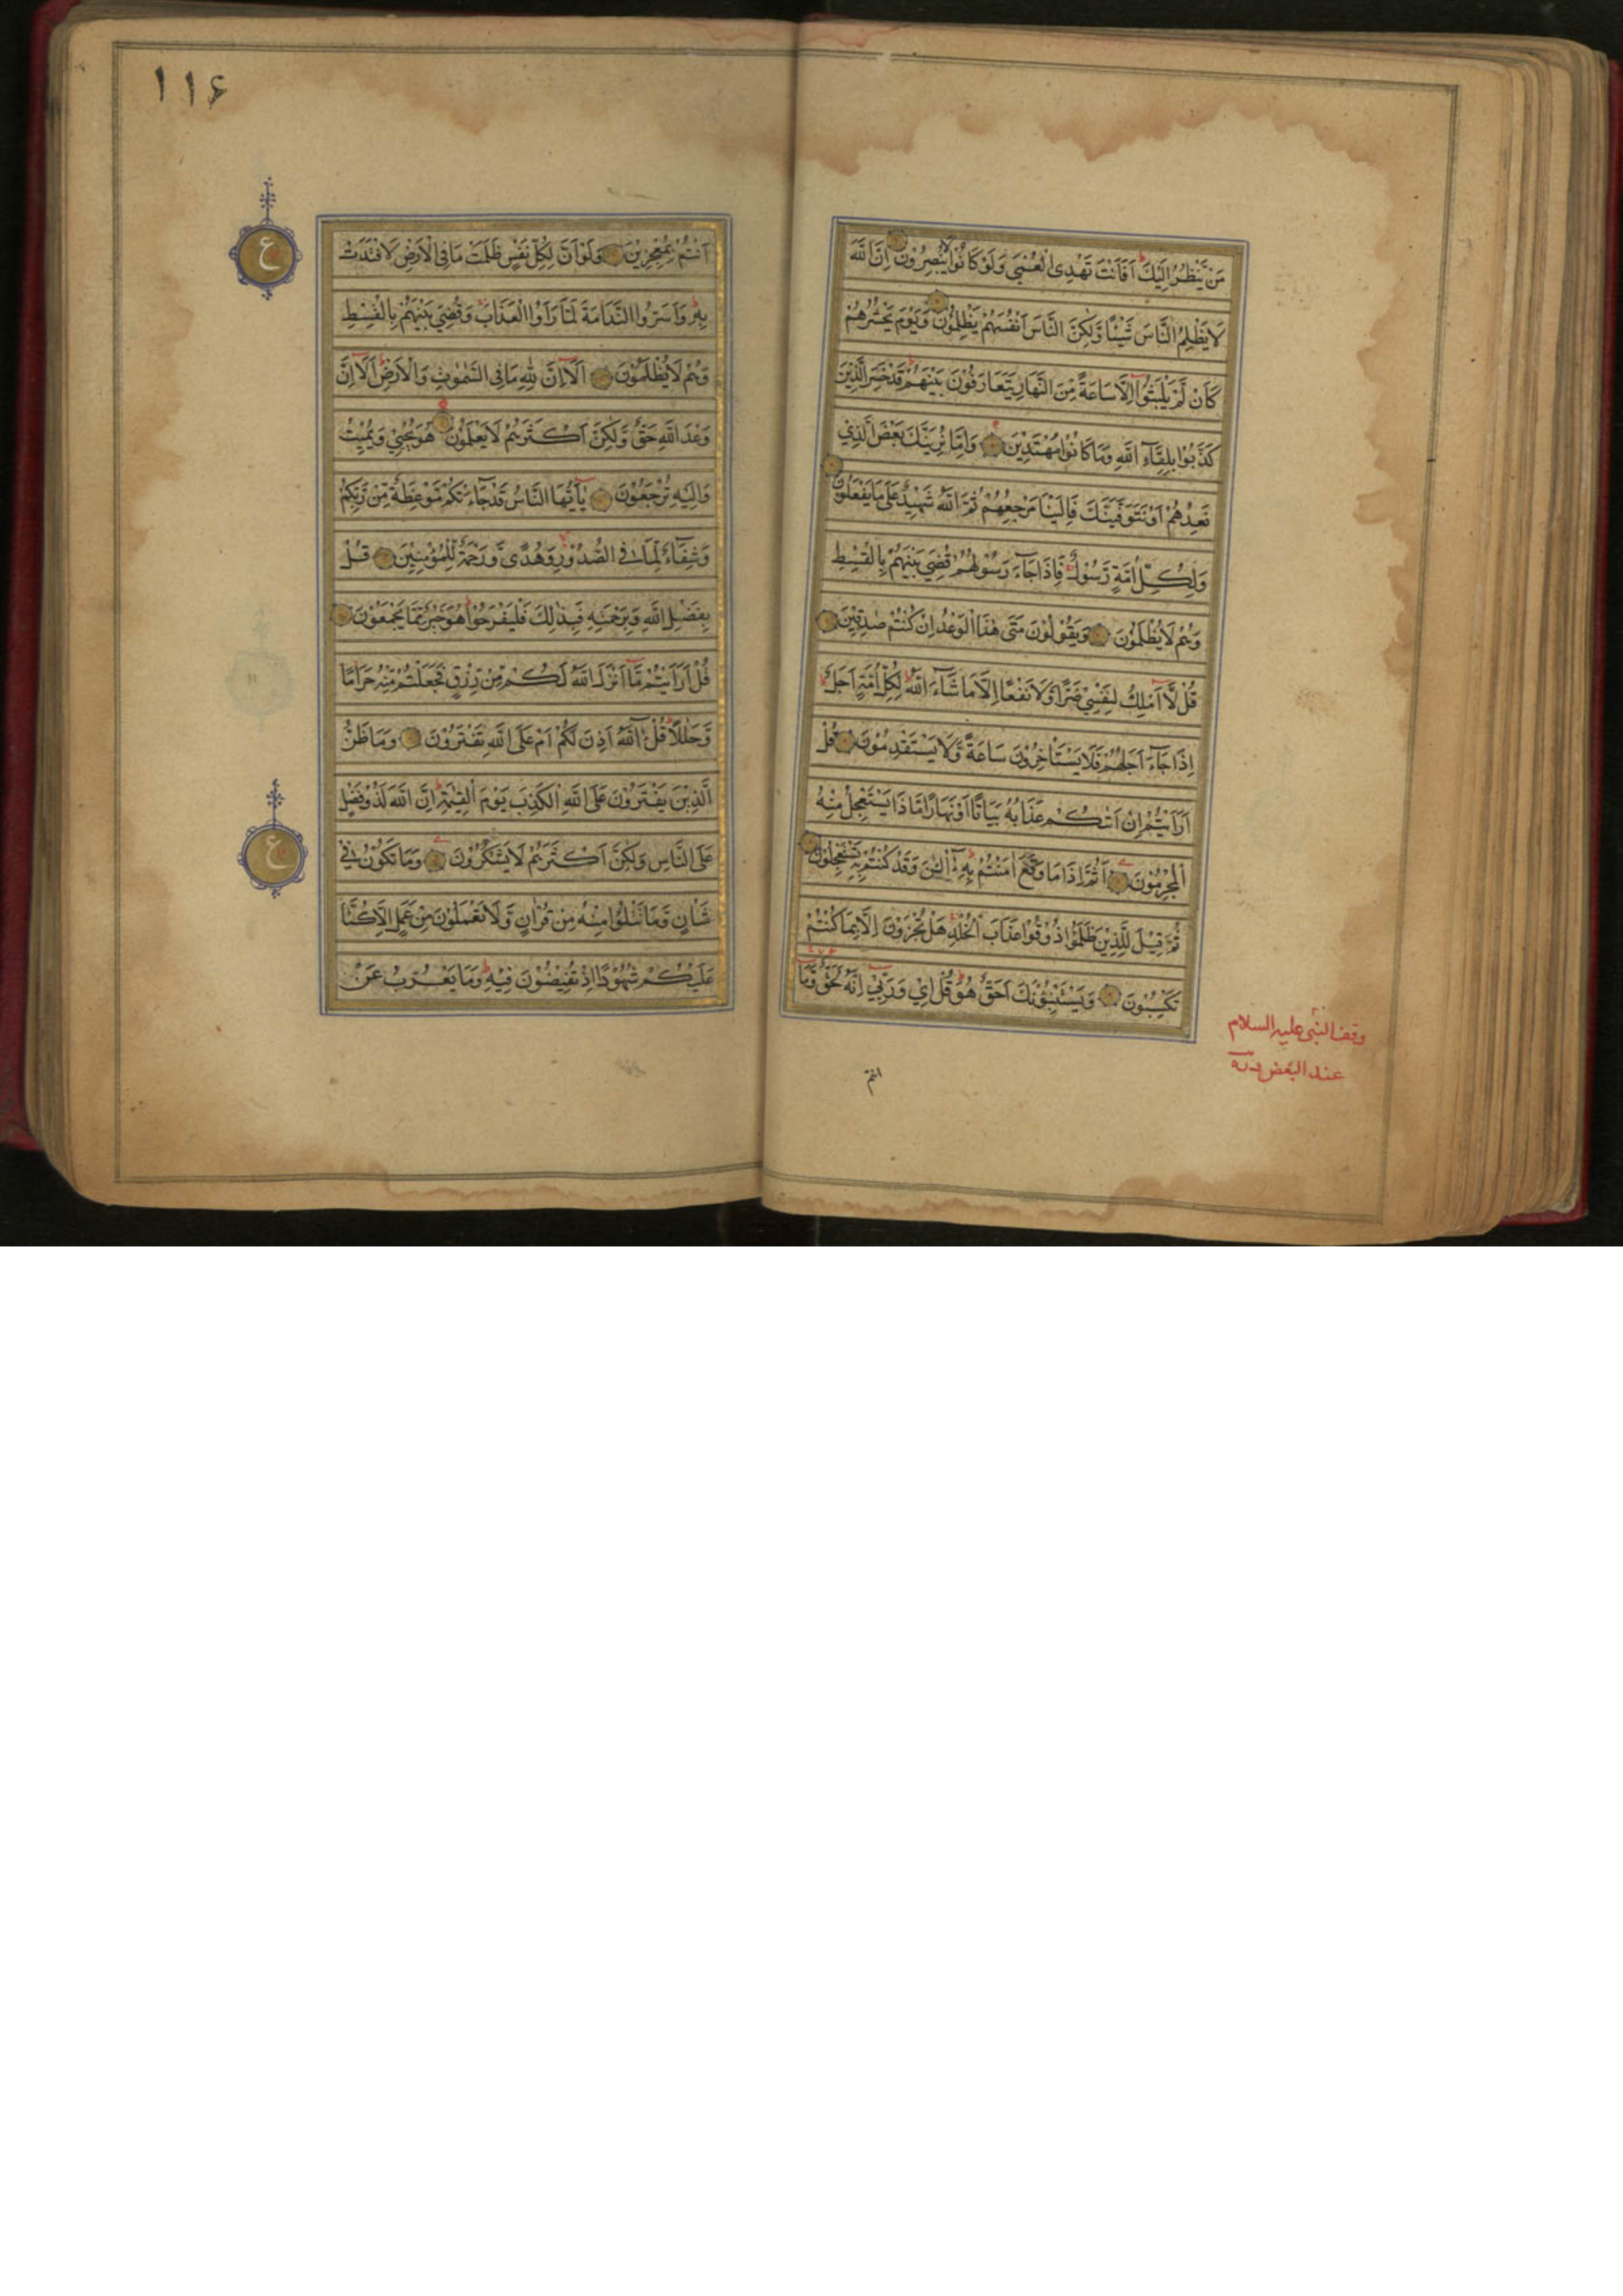 مَنْ يَّنْظُرُ اِلَيْكَ اَفَاَنْتَ تَهْدِى الْعُمْىَ وَلَوْ كَانُوْا لَا يُبْصِرُوْنَ اِنَّ اللّٰهَ
لَا يَظْلِمُ النَّاسَ شَيْئًا وَّلٰكِنَّ النَّاسَ اَنْفُسَهُمْ يَظْلِمُوْنَ وَيَوْمَ يَحْشُرُهُمْ
كَاَنْ لَّمْ يَلْبَثُوْٓا اِلَّا سَاعَةً مِّنَ النَّهَارِ يَتَعَارَفُوْنَ بَيْنَهُمْ قَدْ خَسِرَ الَّذِيْنَ
كَذَّبُوْا بِلِقَآءِ اللّٰهِ وَمَا كَانُوْا مُهْتَدِيْنَ وَاِمَّا نُرِيَنَّكَ بَعْضَ الَّذِىْ
نَعِدُهُمْ اَوْ نَتَوَفَّيَنَّكَ فَاِلَيْنَا مَرْجِعُهُمْ ثُمَّ اللّٰهُ شَهِيْدٌ عَلٰى مَا يَفْعَلُوْنَ
وَلِكُلِّ اُمَّةٍ رَّسُوْلٌ فَاِذَا جَآءَ رَسُوْلُهُمْ قُضِىَ بَيْنَهُمْ بِالْقِسْطِ
وَهُمْ لَا يُظْلَمُوْنَ وَيَقُوْلُوْنَ مَتٰى هٰذَا الْوَعْدُ اِنْ كُنْتُمْ صٰدِقِيْنَ
قُلْ لَّآ اَمْلِكُ لِنَفْسِىْ ضَرًّا وَّلَا نَفْعًا اِلَّا مَا شَآءَ اللّٰهُ لِكُلِّ اُمَّةٍ اَجَلٌ
اِذَا جَآءَ اَجَلُهُمْ فَلَا يَسْتَاْخِرُوْنَ سَاعَةً وَّلَا يَسْتَقْدِمُوْنَ قُلْ
اَرَاَيْتُمْ اِنْ اَتٰىكُمْ عَذَابُهٗ بَيَاتًا اَوْ نَهَارًا مَّا ذَا يَسْتَعْجِلُ مِنْهُ
الْمُجْرِمُوْنَ اَثُمَّ اِذَا مَا وَقَعَ اٰمَنْتُمْ بِهٖ آٰلْئٰنَ وَقَدْ كُنْتُمْ بِهٖ تَسْتَعْجِلُوْنَ
ثُمَّ قِيْلَ لِلَّذِيْنَ ظَلَمُوْا ذُوْقُوْا عَذَابَ الْخُلْدِ هَلْ تُجْزَوْنَ اِلَّا بِمَا كُنْتُمْ
تَكْسِبُوْنَ وَيَسْتَنْبِئُوْنَكَ اَحَقٌّ هُوَ قُلْ اِىْ وَرَبِّىْٓ اِنَّهٗ لَحَقٌّ وَّمَآ
وقف النبی علیه السلام
عند البعض
انتم
١١۶
اَنْتُمْ بِمُعْجِزِيْنَ وَلَوْ اَنَّ لِكُلِّ نَفْسٍ ظَلَمَتْ مَا فِى الْاَرْضِ لَافْتَدَتْ
بِهٖ وَاَسَرُّوا النَّدَامَةَ لَمَّا رَاَوُا الْعَذَابَ وَقُضِىَ بَيْنَهُمْ بِالْقِسْطِ
وَهُمْ لَا يُظْلَمُوْنَ اَلَآ اِنَّ لِلّٰهِ مَا فِى السَّمٰوٰتِ وَالْاَرْضِ اَلَآ اِنَّ
وَعْدَ اللّٰهِ حَقٌّ وَّلٰكِنَّ اَكْثَرَهُمْ لَا يَعْلَمُوْنَ هُوَ يُحْيٖ وَيُمِيْتُ
وَاِلَيْهِ تُرْجَعُوْنَ يٰٓاَيُّهَا النَّاسُ قَدْ جَآءَتْكُمْ مَّوْعِظَةٌ مِّنْ رَّبِّكُمْ
وَشِفَآءٌ لِّمَا فِى الصُّدُوْرِ وَهُدًى وَّرَحْمَةٌ لِّلْمُؤْمِنِيْنَ قُلْ
بِفَضْلِ اللّٰهِ وَبِرَحْمَتِهٖ فَبِذٰلِكَ فَلْيَفْرَحُوْا هُوَ خَيْرٌ مِّمَّا يَجْمَعُوْنَ
قُلْ اَرَاَيْتُمْ مَّآ اَنْزَلَ اللّٰهُ لَكُمْ مِّنْ رِّزْقٍ فَجَعَلْتُمْ مِّنْهُ حَرَامًا
وَّحَلٰلًا قُلْ آٰللّٰهُ اَذِنَ لَكُمْ اَمْ عَلَى اللّٰهِ تَفْتَرُوْنَ وَمَا ظَنُّ
الَّذِيْنَ يَفْتَرُوْنَ عَلَى اللّٰهِ الْكَذِبَ يَوْمَ الْقِيٰمَةِ اِنَّ اللّٰهَ لَذُوْ فَضْلٍ
عَلَى النَّاسِ وَلٰكِنَّ اَكْثَرَهُمْ لَا يَشْكُرُوْنَ وَمَا تَكُوْنُ فِىْ
شَاْنٍ وَّمَا تَتْلُوْا مِنْهُ مِنْ قُرْاٰنٍ وَّلَا تَعْمَلُوْنَ مِنْ عَمَلٍ اِلَّا كُنَّا
عَلَيْكُمْ شُهُوْدًا اِذْ تُفِيْضُوْنَ فِيْهِ وَمَا يَعْزُبُ عَنْ
ع
ع